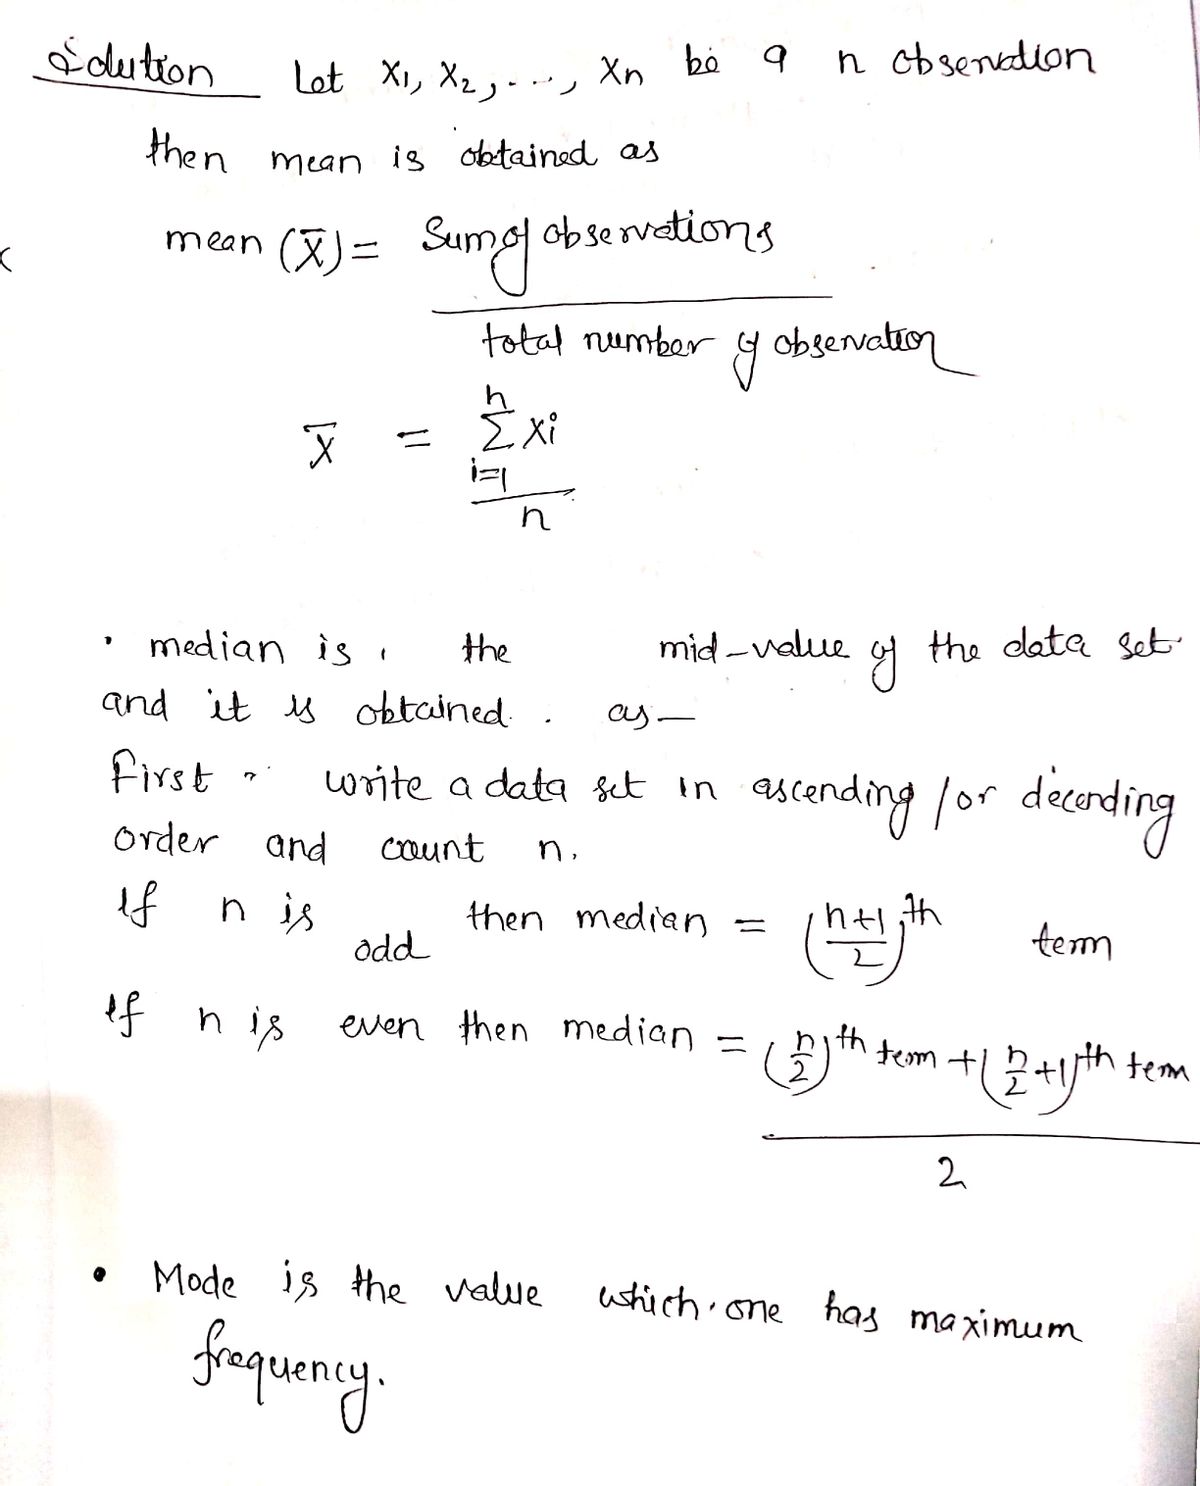 Solution Let X1, X2, ---, Xn be a n observation
then mean is obtained as
mean (X̄) = Sum of observations
total number of observation
X̄ = n
Σ xi
i=1
n
• median is the mid-value of the data set
and it is obtained as –
First write a data set in ascending / or decending
order and count n.
If n is odd then median = (n+1/2)th term
If n is even then median = (n/2)th term + (n/2+1)th term
2
• Mode is the value which one has maximum
frequency.